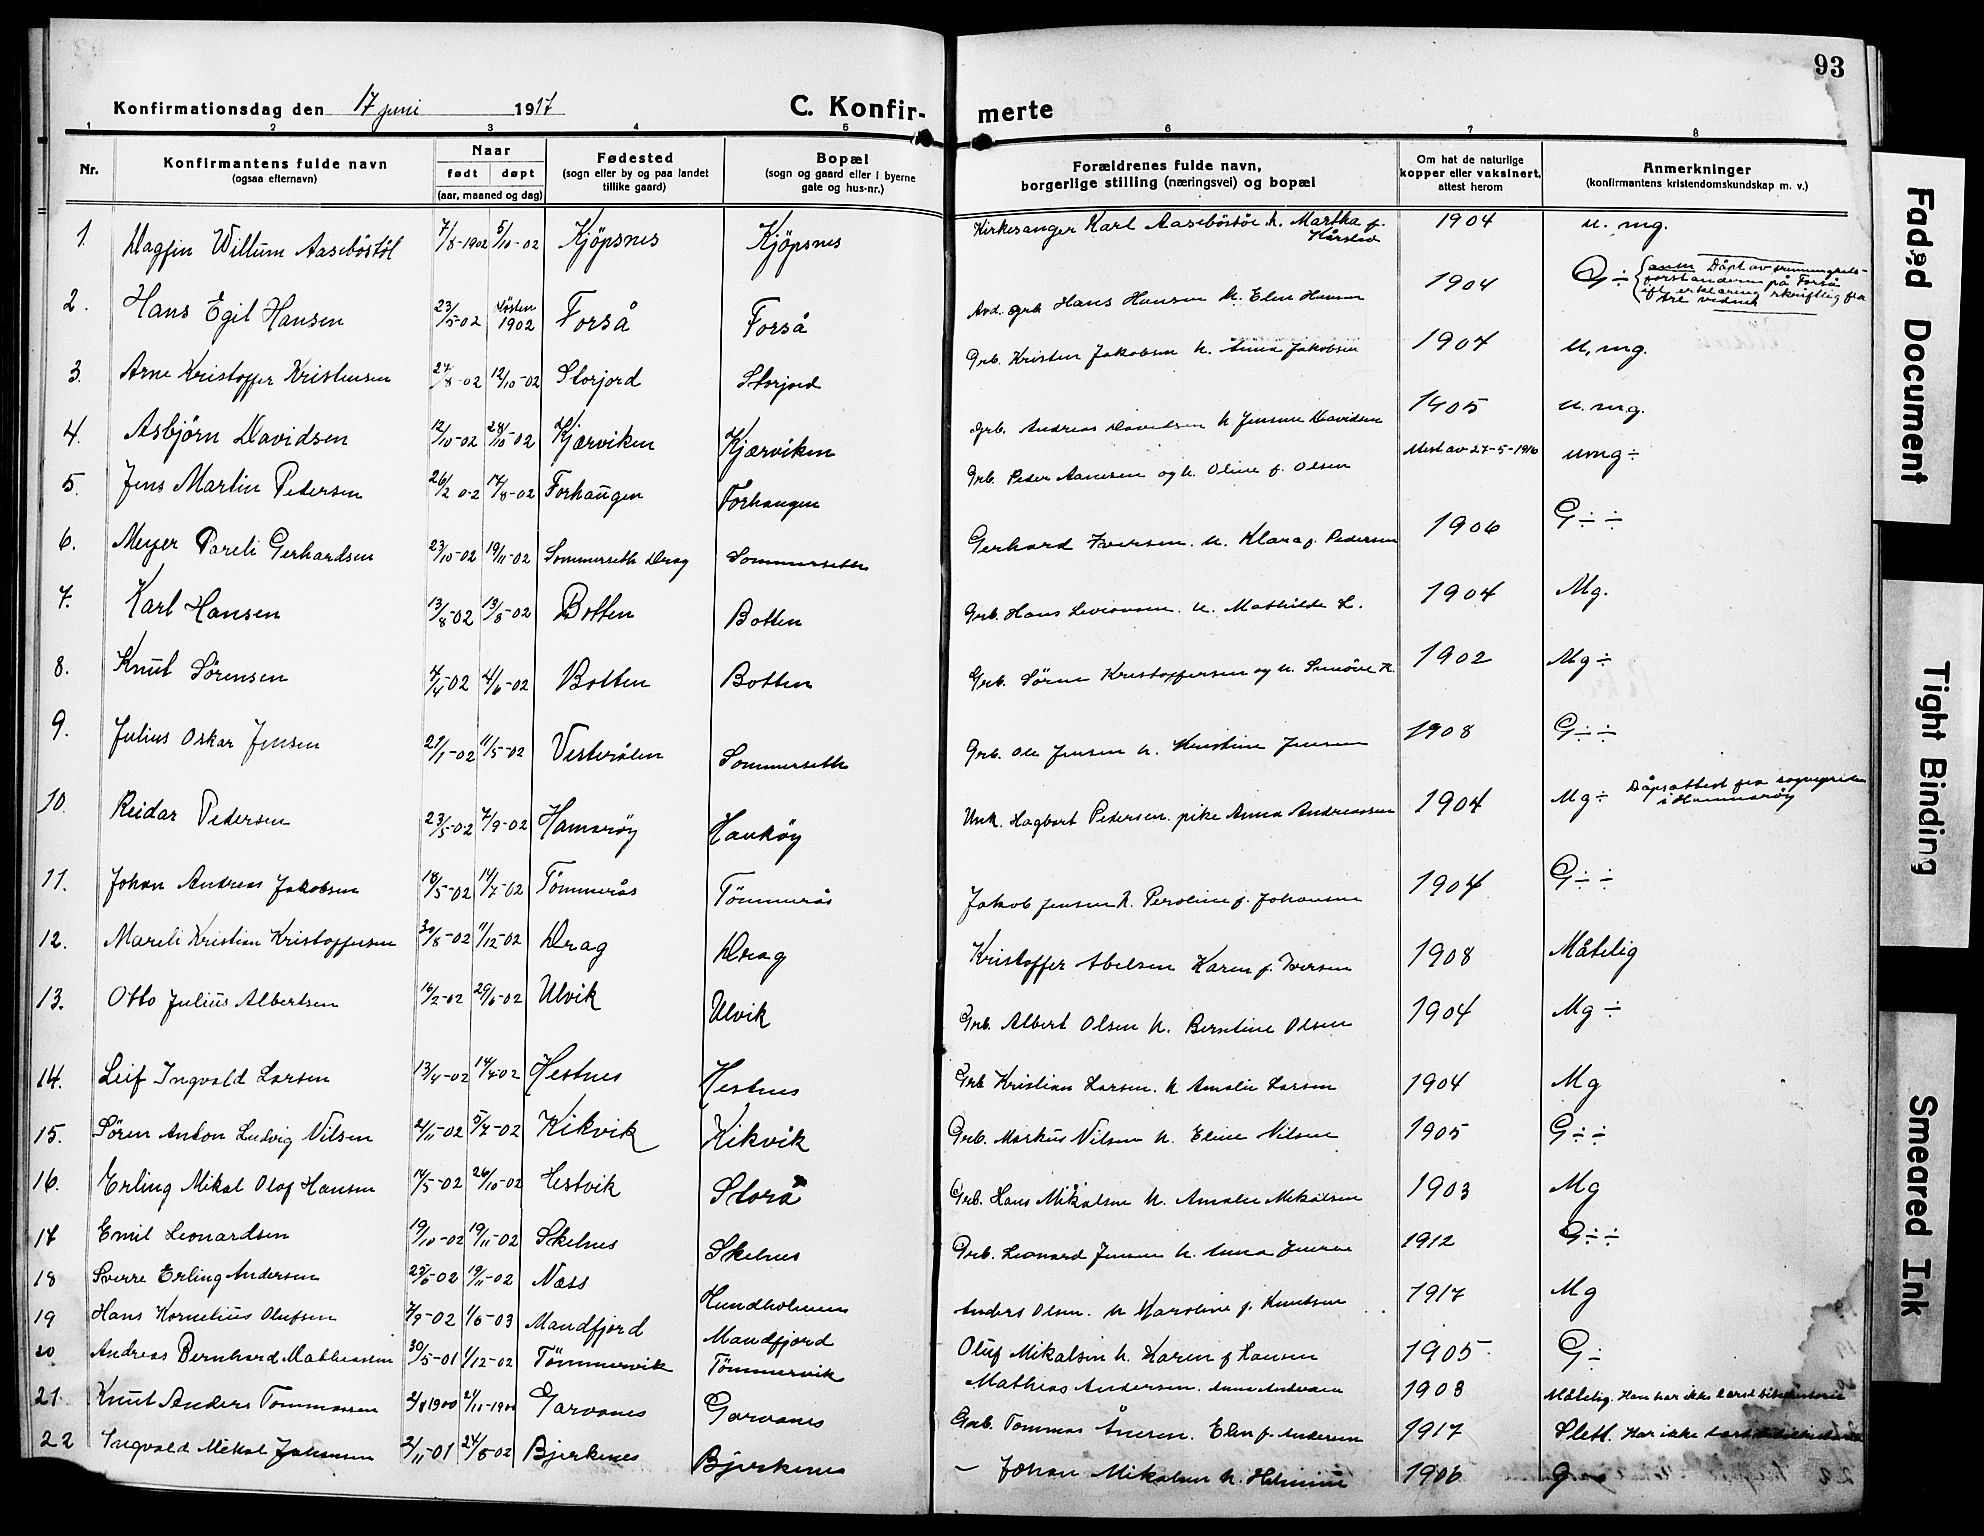 93
Konfirmationsdag den 17 juni 1917
C. Konfir-merte
1 2 3 4 5 6 7 8
Nr. | Konfirmantens fulde navn (ogsaa efternavn) | Naar født døpt (aar, maaned og dag) | Fødested (sogn eller by og paa landet tillike gaard) | Bopæl (sogn og gaard eller i byerne gate og hus-nr.) | Forældrenes fulde navn, borgerlige stilling (næringsvei) og bopæl | Om hat de naturlige kopper eller vaksinert, attest herom | Anmerkninger (konfirmantens kristendomskundskap m. v.)
1. Magfin Willum Aaseböstöl 7/8-1902 5/10-02 Kjöpsnes Kjöpsnes Kirkesanger Karl Aaseböstöl h. Martha f. Kårstad 1904 u. mg.
2. Hans Egil Hansen 23/5-02 Høsten 1902 Forså Forså Avd. grb. Hans Hansen h. Elen Hansen 1904 G÷ Döpt av på Forså ifl. erklæring skriftlig fra tre vidner
3. Arne Kristoffer Kristensen 27/8-02 12/10-02 Storjord Storjord Grb. Kristen Jakobsen h. Anna Jakobsen 1904 u, mg.
4. Asbjörn Davidsen 12/10-02 28/10-02 Kjærviken Kjærviken Grb. Andreas Davidsen h Jensine Davidsen 1905 u. mg.
5. Jens Martin Pedersen 26/2 02 17/8-02 Forhaugen Forhaugen Grb. Peder Aanesen og h. Oline f. Olsen Attest av 27-5-1916 umg÷
6. Meyer Pareli Gerhardsen 23/10-02 19/11-02 Sommerseth Drag Sommerseth Gerhard Iversen. h. Klara f. Pedersen 1906 G÷÷
7. Karl Hansen 13/8-02 13/8-02 Botten Botten Grb. Hans h. Mathilde L. 1904 Mg.
8. Knut Sörensen 4/4-02 4/6-02 Botten Botten Grb. Sören Kristoffersen og h. K 1902 Mg÷
9. Julius Oskar Jensen 29/1-02 11/5-02 Vesterålen Sommerseth Grb. Ole Jensen h. Kristine Jensen 1908 G÷÷
10. Reidar Pedersen 23/5-02 7/9-02 Hamsröy Havköy Unk. Hagbart Pedersen. pike Anna Andreassen 1904 Mg÷ Dåpsattest fra sogneprest i Hammeröy
11. Johan Andreas Jakobsen 18/5-02 14/7-02 Tömmerås Tömmerås Jakob Jensen h. Peroline f. Johansen 1904 G÷÷
12. Mareli Kristian Kristoffersen 30/8-02 11/12-02 Drag Drag Kristoffer Abelsen Karen f. Iversen 1908 Måtelig
13. Otto Julius Albertsen 16/2-02 29/6-02 Ulvik Ulvik Grb. Albert Olsen h. Berntine Olsen 1904 Mg ÷
14. Leif Ingvald Larsen 13/4-02 14/7-02 Hestnes Hestnes Grb Kristian Larsen. h Amalie Larsen 1904 Mg
15. Sören Anton Ludvig Nilsen 2/11-02 5/7-02 Kikvik Kikvik Grb. Markus Nilsen h. Eline Nilsen 1905 G÷÷
16. Erling Mikal Olaf Hansen 14/5-02 26/10-02 Hestvik Storå Grb. Hans Mikalsen h. Amalie Mikalsen 1903 Mg
17 Emil Leonardsen 19/10-02 19/11-02 Skelnes Skelnes Grb. Leonard Jensen h. Anna Jensen 1912 G÷÷
18 Sverre Erling Andersen 23/6-02 19/11-02 Næss Hundholmen Anders Olsen. h Karoline f. Knutsen 1917 Mg
19 Hans Kornelius Olufsen 7/9-02 1/6-03 Mandfjord Mandfjord Oluf Mikalsen h. Karen f Hansen 1905 G÷
20 Andreas Bernhard Mathiassen 30/5-01 1/12-02 Tömmervik Tömmervik Mathias Andersen. Anna Andersen 1903 Måtelig. Han har ikke lært bibelhistorie
21 Knut Anders Tommassen 2/8 1900 21/11-1900 Garvanes Garvanes Grb. Tommas Ånesen. Elen f. Andersen 1917 Slett. Har ikke lært bibelhistorie
22 Ingvald Mikal Johansen 2/11-01 24/8-02 Bjerkenes Bjerkenes — Johan Mikalsen h. Helmine 1906 G
Faded Document
Tight Binding
Smeared Ink